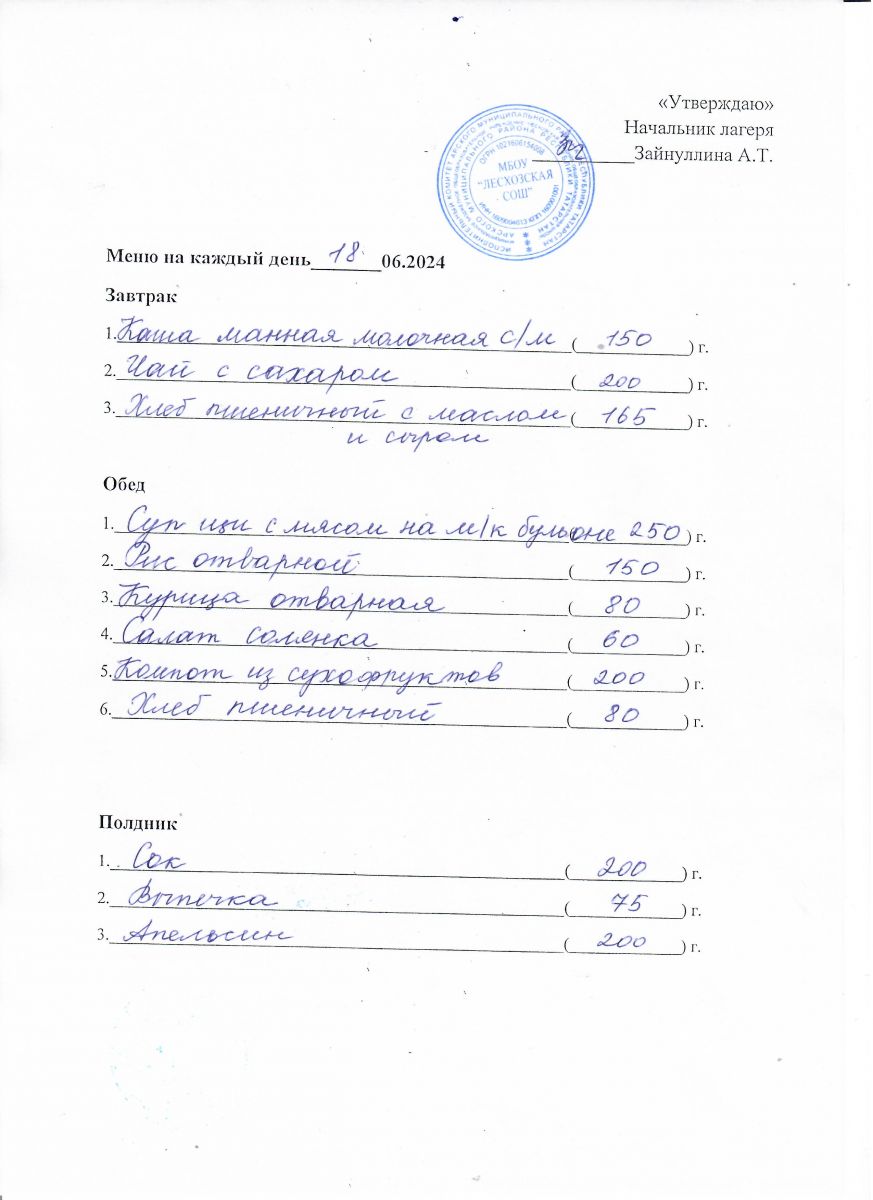 «Утверждаю»
Начальник лагеря
____________Зайнуллина А.Т.
МБОУ
"ЛЕСХОЗСКАЯ
СОШ"
ОГРН 1021606154008
Меню на каждый день 18 06.2024
Завтрак
1. Каша манная молочная с/м ( 150 ) г.
2. Чай с сахаром ( 200 ) г.
3. Хлеб пшеничный с маслом ( 165 ) г.
и сыром
Обед
1. Суп щи с мясом на м/к бульоне 250 ) г.
2. Рис отварной ( 150 ) г.
3. Курица отварная ( 80 ) г.
4. Салат солянка ( 60 ) г.
5. Компот из сухофруктов ( 200 ) г.
6. Хлеб пшеничный ( 80 ) г.
Полдник
1. Сок ( 200 ) г.
2. Выпечка ( 75 ) г.
3. Апельсин ( 200 ) г.